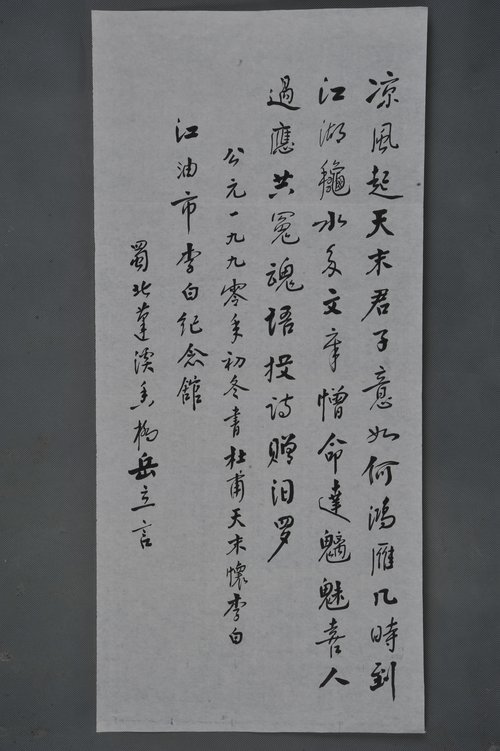 凉風起天末君子意如何鴻雁几時到
江湖穐水多文章憎命達魑魅喜人
過應共冤魂语投诗赠汨罗
公元一九九零年初冬書杜甫天末懷李白
江油市李白纪念館
蜀北蓬溪 岳立言